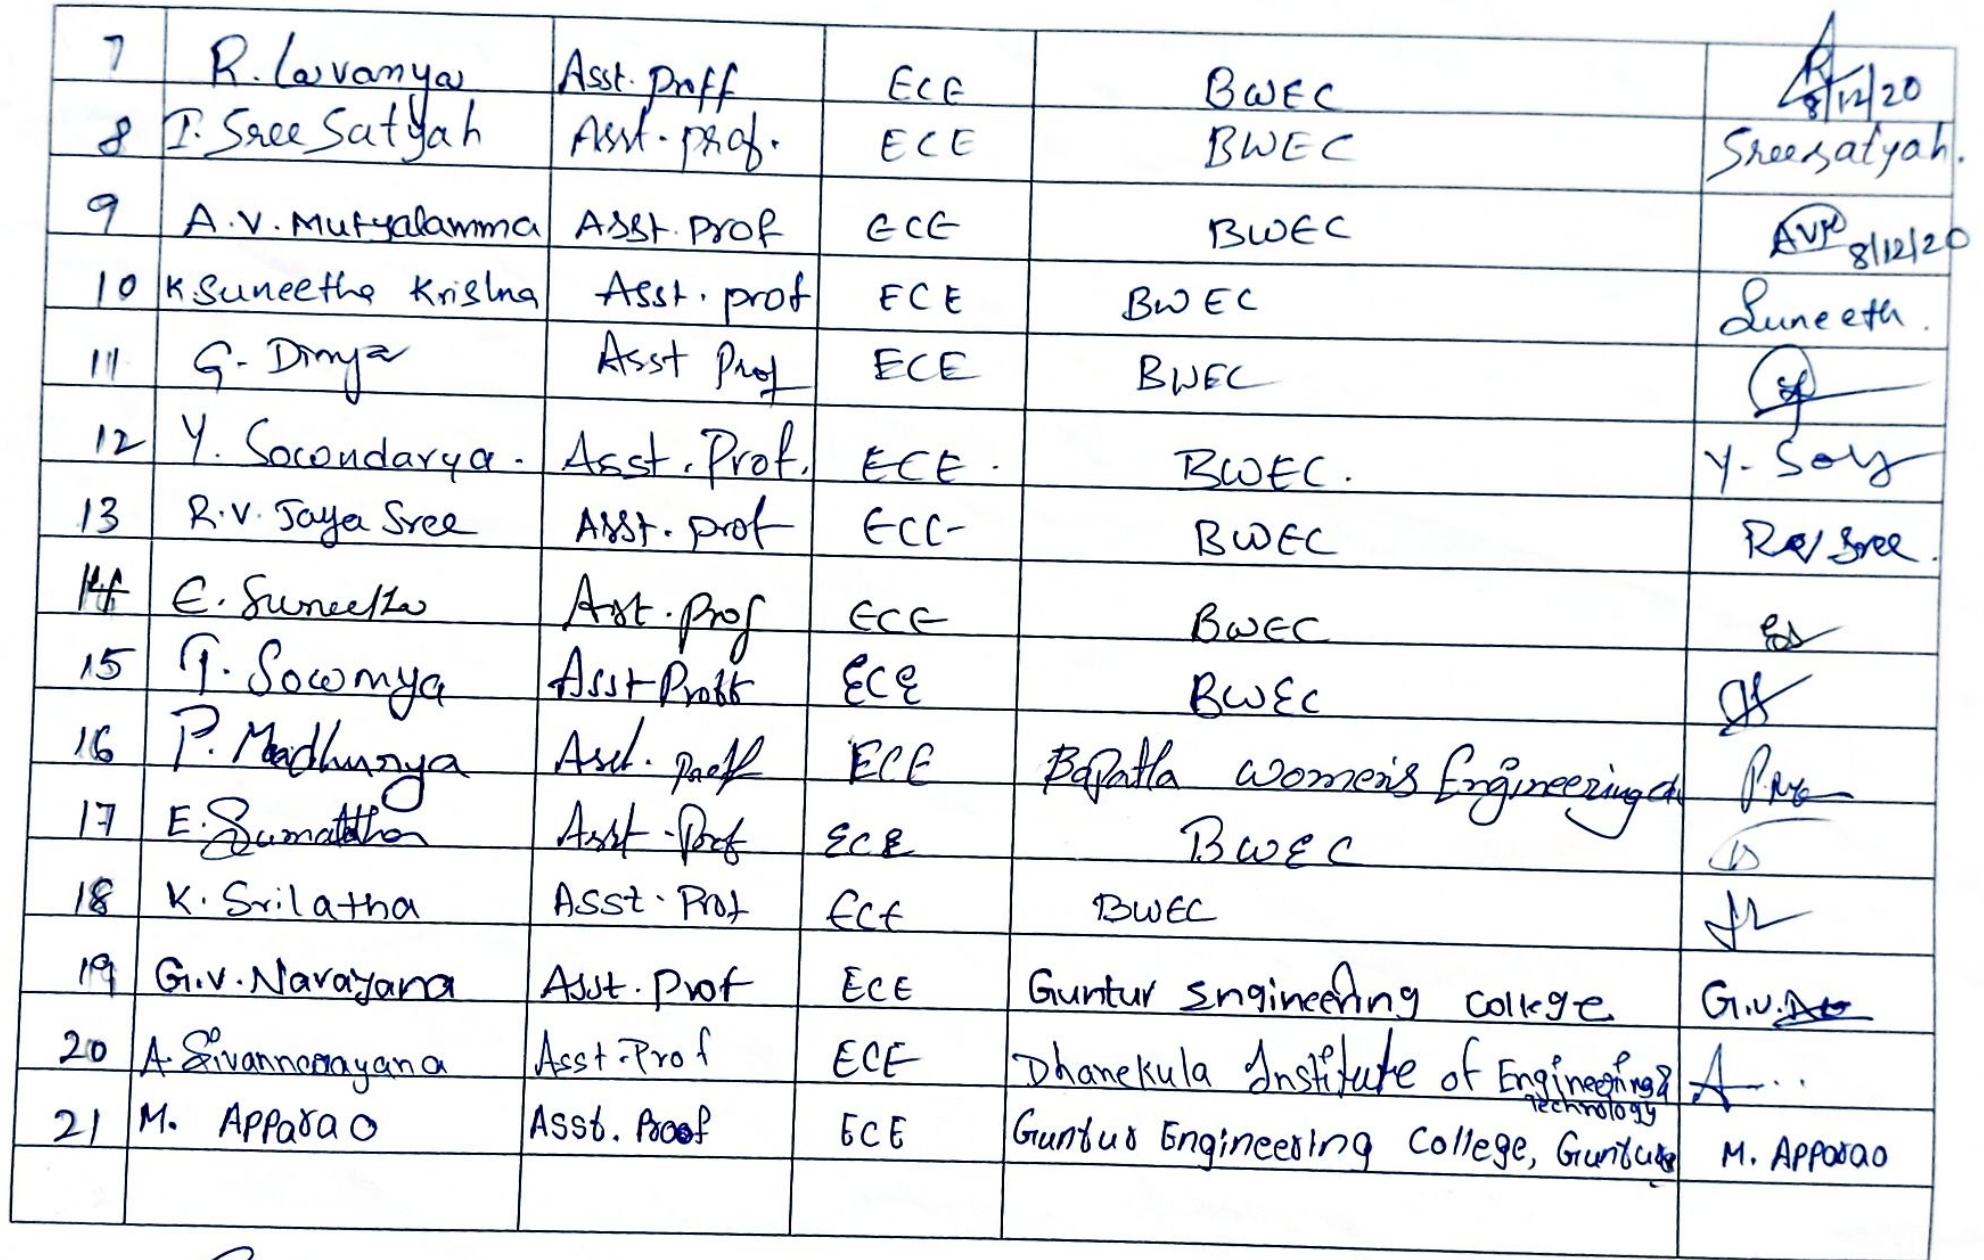 7 R. Lavanya Asst. Proff ECE BWEC 8/12/20
8 T. Sree Satyah Asst. prof. ECE BWEC Sreesatyah.
9 A.V. Mutyalamma Asst. Prof ECE BWEC AVM 8/12/20
10 K Suneetha Krishna Asst. prof ECE BWEC Suneeth.
11 G. Divya Asst Prof ECE BWEC
12 Y. Sowndarya. Asst. Prof. ECE. BWEC. Y. Sow
13 R.V. Jaya Sree Asst. prof ECE BWEC RV Sree.
14 E. Suneetha Asst. Prof ECE BWEC
15 T. Sowmya Asst Proff ECE BWEC
16 P. Madhurya Asst. Proff ECE Bapatla women's Engineering
17 E. Sumathha Asst. Prof ECE BWEC
18 K. Srilatha Asst. Prof ECE BWEC
19 G.V. Narayana Asst. Prof ECE Guntur Engineering College G.V.
20 A. Sivannarayana Asst. Prof ECE Dhanekula Institute of Engineering & A
Technology
21 M. Apparao Asst. Proof ECE Guntur Engineering College, Guntur M. Apparao